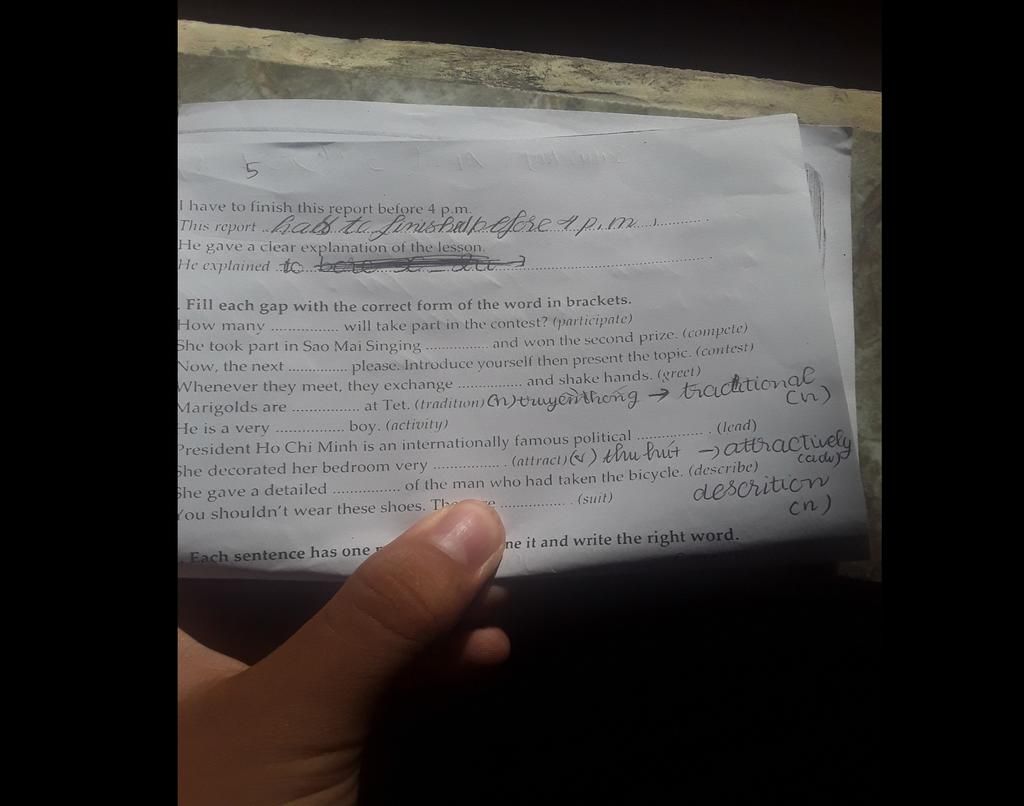 5
I have to finish this report before 4 p.m.
This report .. before 4 p.m ...........
He gave a clear explanation of the lesson.
He explained .to ..............................
. Fill each gap with the correct form of the word in brackets.
How many ............... will take part in the contest? (participate)
She took part in Sao Mai Singing .............. and won the second prize. (compete)
Now, the next ............. please. Introduce yourself then present the topic. (contest)
Whenever they meet, they exchange .............. and shake hands. (greet)
Marigolds are ............... at Tet. (tradition) (n) truyền thống → traditional (n)
He is a very ............... boy. (activity)
President Ho Chi Minh is an internationally famous political ............... . (lead)
She decorated her bedroom very ............... . (attract) (v) thu hút → attractively (adv)
She gave a detailed ............... of the man who had taken the bicycle. (describe) descrition (n)
You shouldn't wear these shoes. ............... . (suit)
. Each sentence has one it and write the right word.